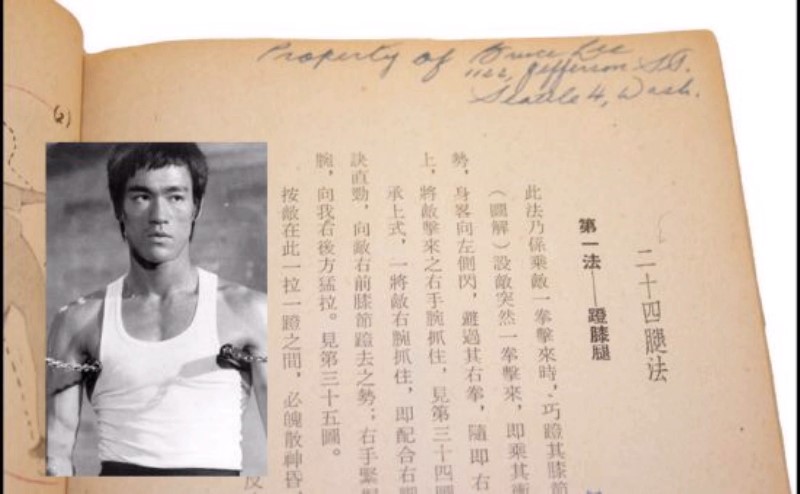 Property of Bruce Lee
1122, Jefferson St.
Seattle 4, Wash.
(2)
二十四腿法
第一法——蹬膝腿
此法乃係乘敵一拳擊來時，巧蹬其膝節
（圖解）設敵突然一拳擊來，即乘其衝
勢，身畧向左側閃，避過其右拳，隨即右
上，將敵擊來之右手腕抓住，見第三十四圖
承上式，一將敵右腕抓住，即配合右脚
訣直勁，向敵右前膝節蹬去之勢；右手緊
腕，向我右後方猛拉。見第三十五圖。
按敵在此一拉一蹬之間，必魄散神昏，